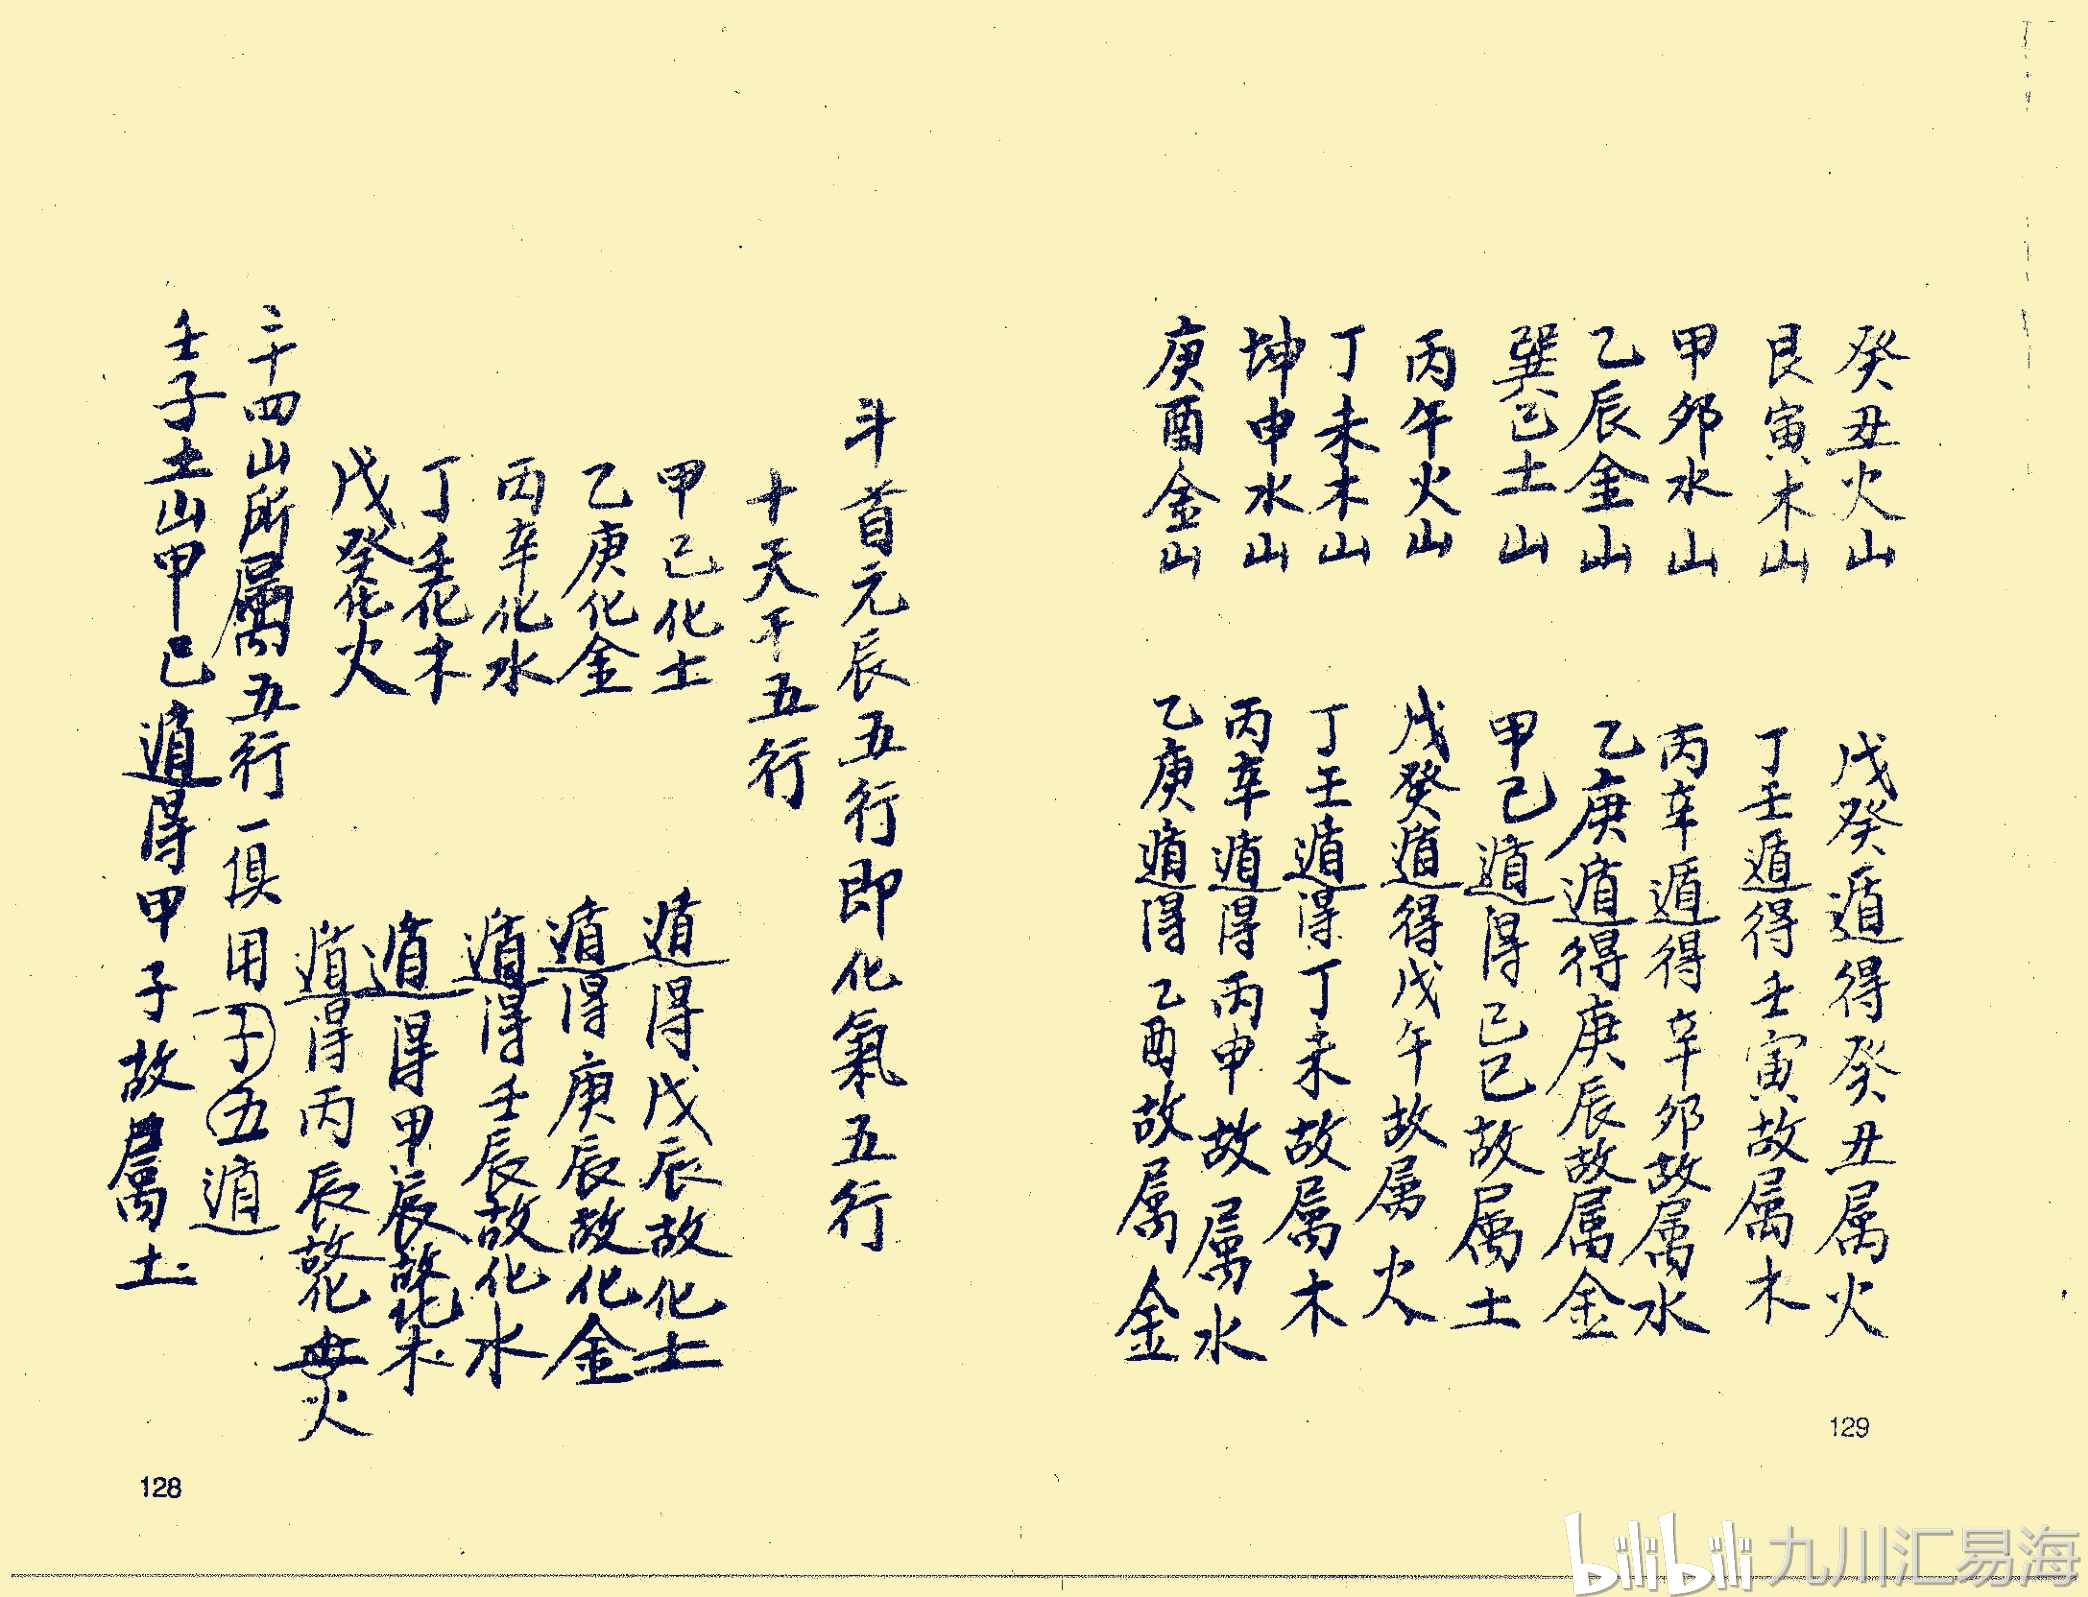 斗首元辰五行即化氣五行
十天干五行
甲己化土 遁得戊辰故化土
乙庚化金 遁得庚辰故化金
丙辛化水 遁得壬辰故化水
丁壬化木 遁得甲辰故化木
戊癸化火 遁得丙辰故化火
二十四山所属五行一俱用子五遁
壬子土山甲己遁得甲子故属土
128
癸丑火山 戊癸遁得癸丑属火
艮寅木山 丁壬遁得壬寅故属木
甲卯水山 丙辛遁得辛卯故属水
乙辰金山 乙庚遁得庚辰故属金
巽巳土山 甲己遁得己巳故属土
丙午火山 戊癸遁得戊午故属火
丁未木山 丁壬遁得丁未故属木
坤申水山 丙辛遁得丙申故属水
庚酉金山 乙庚遁得乙酉故属金
129
bilibili 九川汇易海